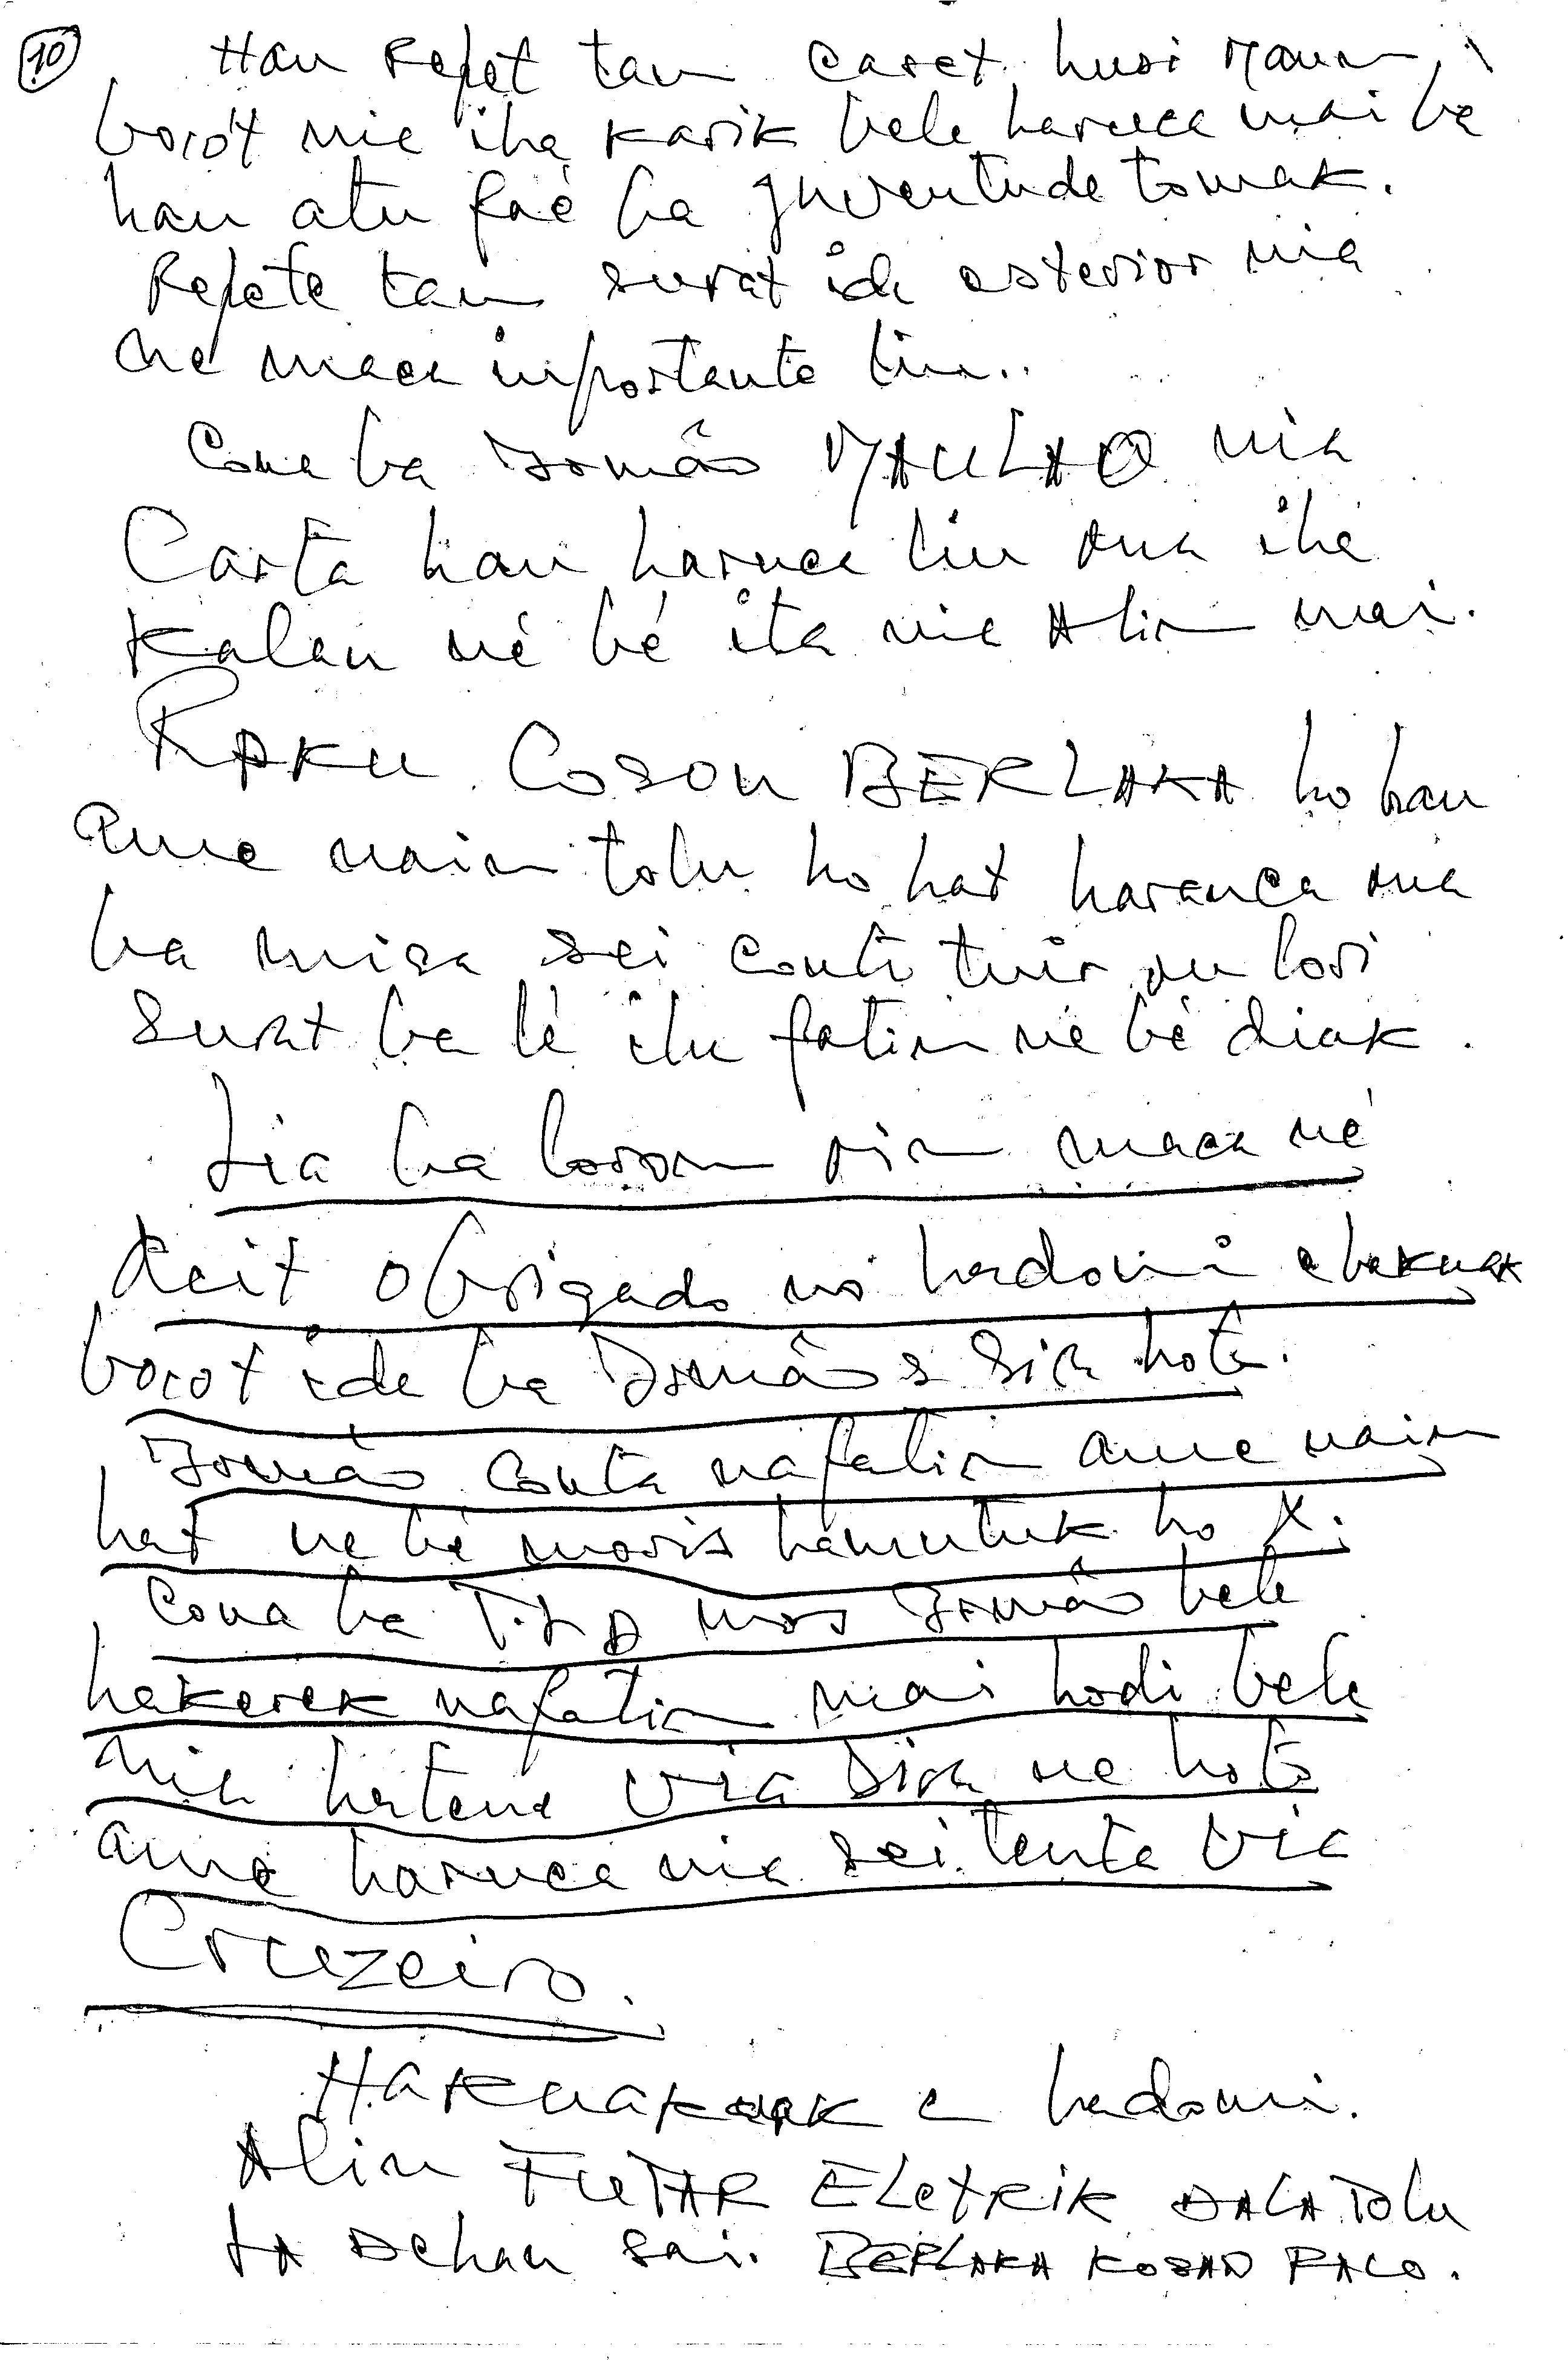 10
Hau Repet tan caset husi Maun
bocót nia iha karik bele haruca mai ba
hau atu faé ba Juventude tomak.
Repete tan surat ida exterior nia
ne maca importante liu..
Cona ba Irmão MAULAO nia
Carta hau haruca liu ona iha
Kalan né bé ita nia Alin mai.
RAKU Coson BERLAKA ho hau
ame nain tolu ho hat haruca ona
ba misa sei conti tuir nu losi
Surat ba lé iha fatin ne bé diak.
Lia ba loron oin maca né
deit obrigado no hadomi e hakuak
bocot ida ba Irmãos sira hotu.
Irmão conta nafatin ame nain
hat ne bé moris hamutuk ho X.
Cona ba T.L.D mos Irmão bele
hakerek nafatin mai hodi bele
nia hatene via sira ne hoto
ame haruca nia sei tenta via
Cruzeiro.
Hakuak e hadomi.
Alin FUTAR ELetRiK DALA Tolu
LA Dehan sai. BERLAKA KOSAN RACO.